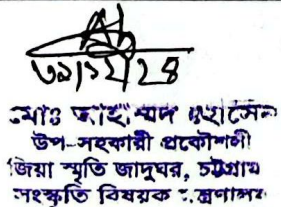 ৩১/১২/২৪
মোঃ জাহাঙ্গীর হোসেন
উপ-সহকারী প্রকৌশলী
জিয়া স্মৃতি জাদুঘর, চট্টগ্রাম
সংস্কৃতি বিষয়ক মন্ত্রণালয়